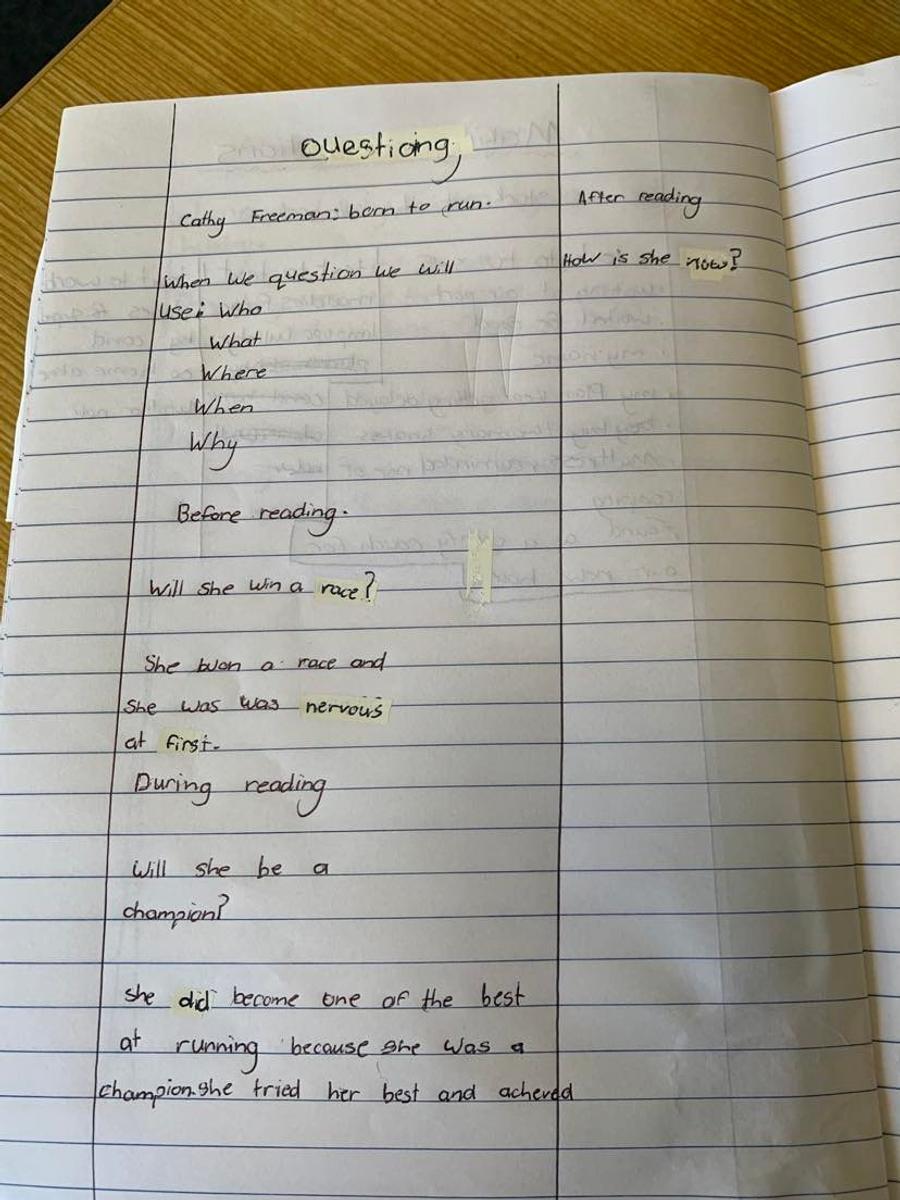 Questioing
Cathy Freeman: born to run.
When we question we will
use: Who
What
Where
When
Why
Before reading.
Will she win a race?
She won a race and
she was was nervous
at first.
During reading
Will she be a
champion?
she did become one of the best
at running because she was a
champion. she tried her best and acheved
After reading
How is she now?